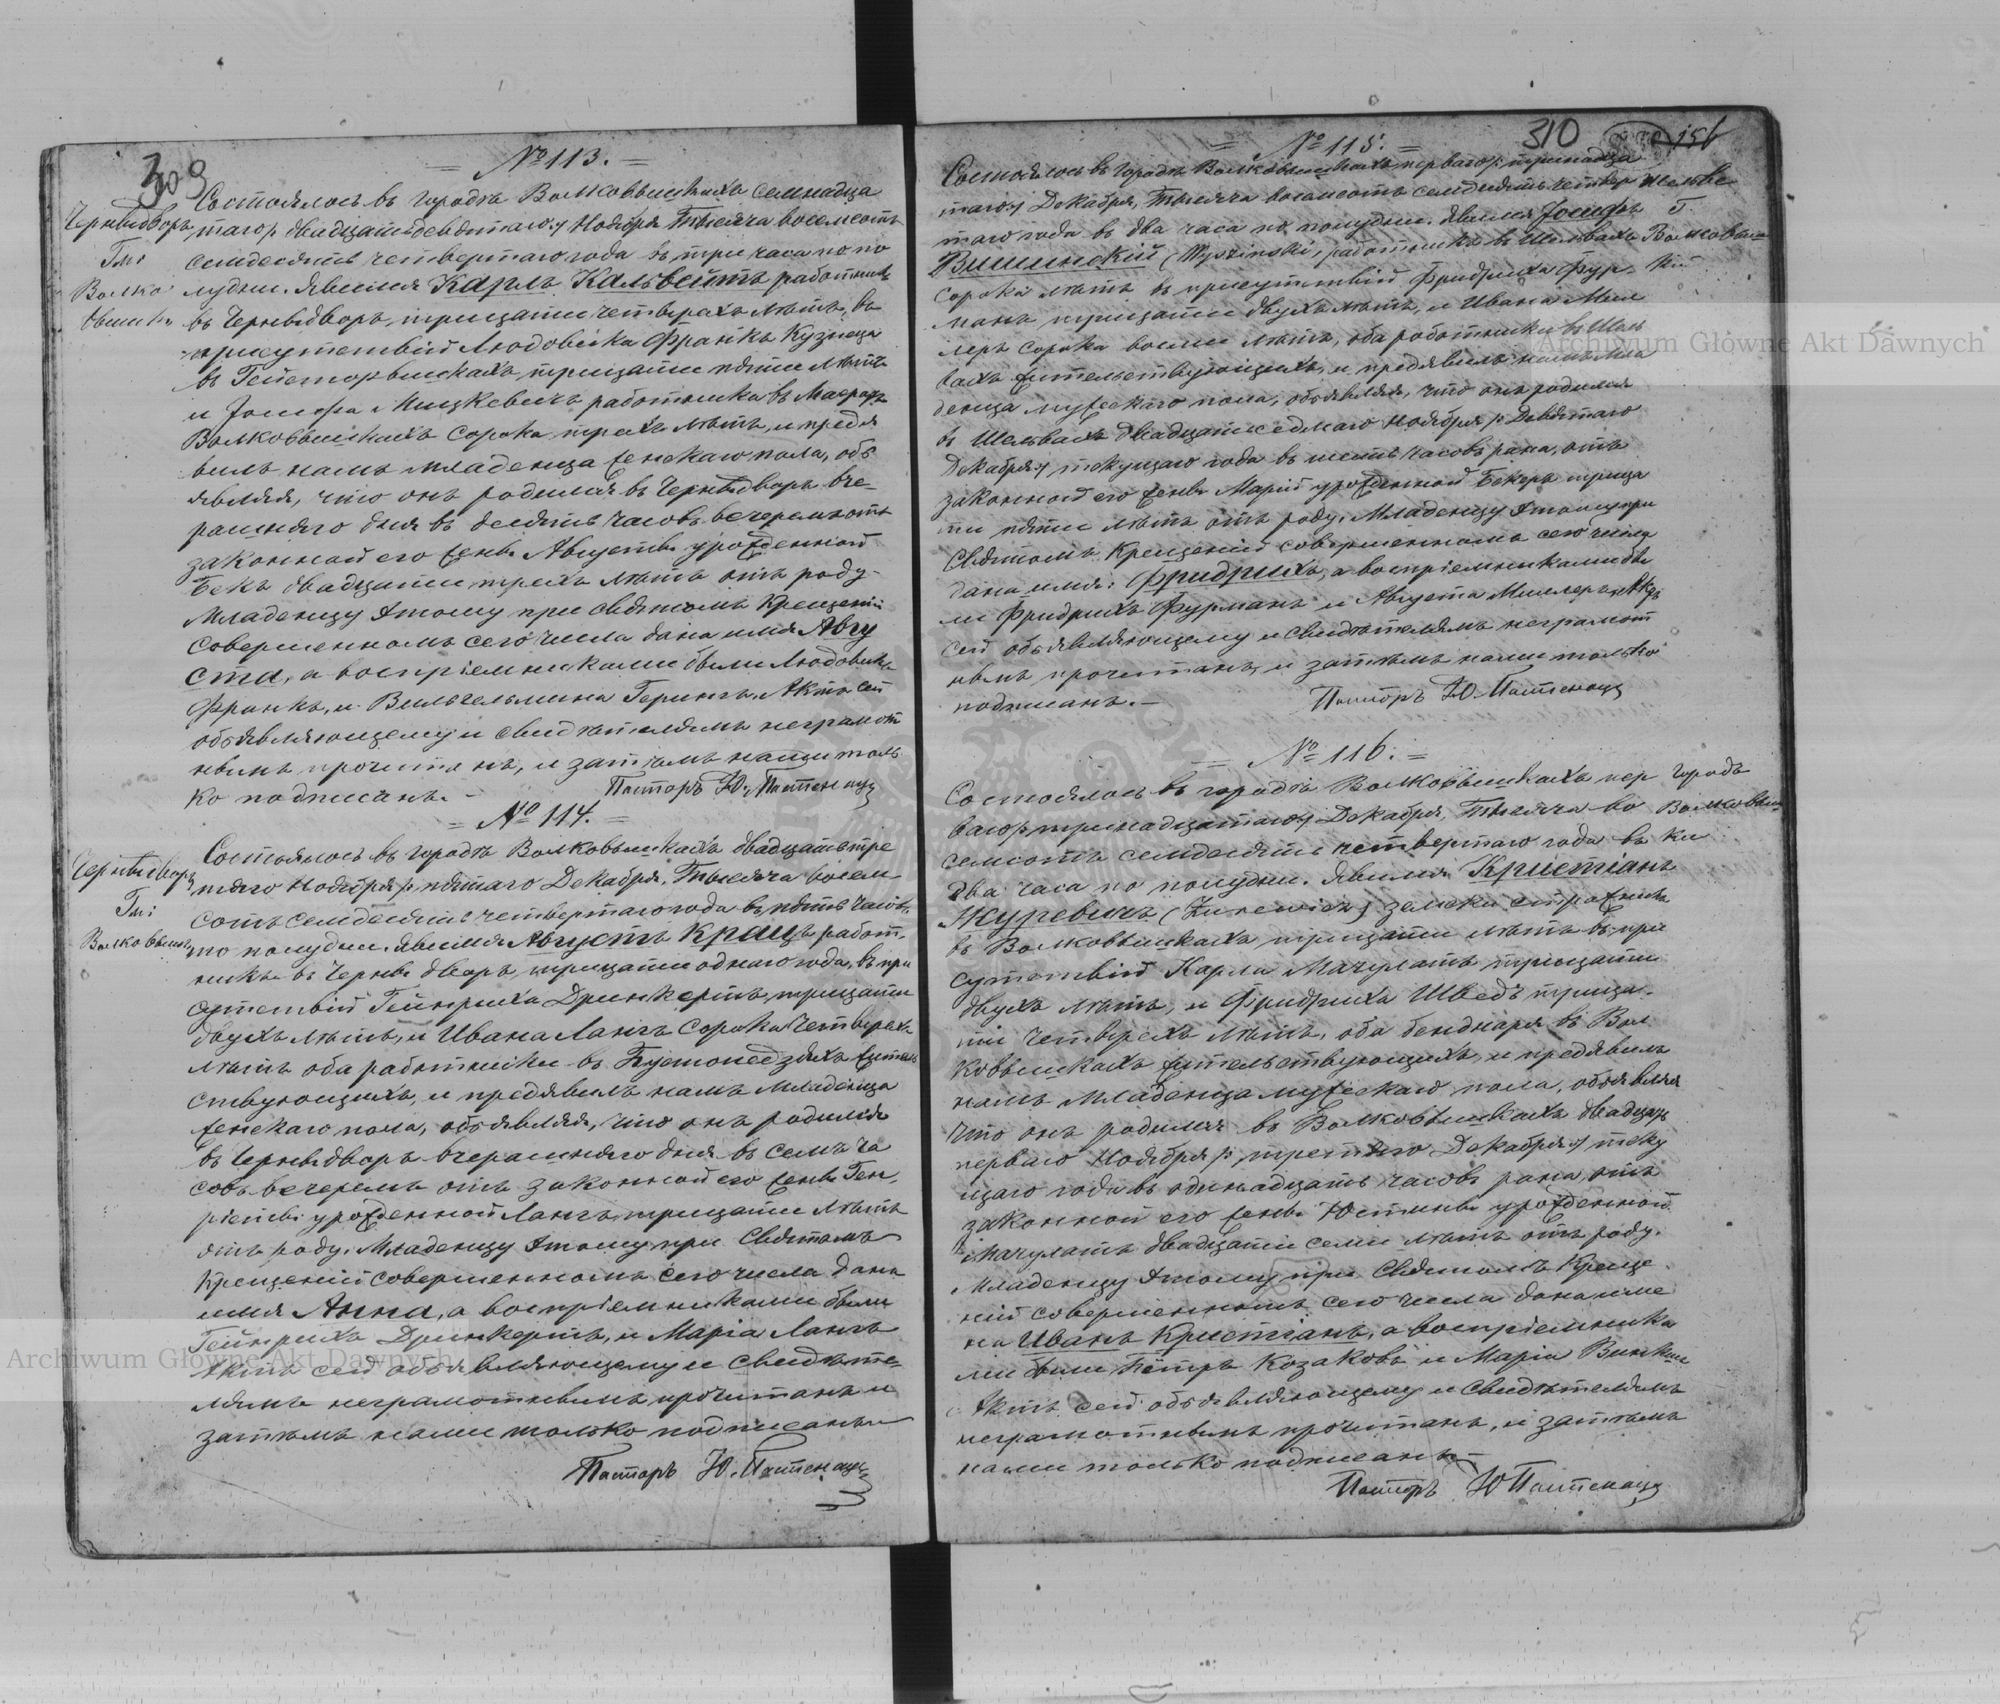 309
№ 113.
Чернведворъ
Гм:
Волко
вышки
Состоялось въ городѣ Волковышкахъ семнадца
таго/ двадцать девятаго/ Ноября Тысяча восемсотъ
семдесятъ четвертаго года въ три часа по по
лудни. Явился Карлъ Кальвейтъ работникъ
въ Чернведворъ, тридцати четырехъ лѣтъ, въ
присутствіи Людовика Франкъ Кузнеца
въ тридцати пяти лѣтъ
и Іосифа Мицкевичъ работника въ
Волковышкахъ сорока трехъ лѣтъ, и предъя
вилъ намъ младенца женскаго пола, объ
являя, что онъ родился въ Чернведворъ вче
рашняго дня въ десять часовъ вечеромъ отъ
законной его жены Августы урожденной
Бекъ двадцати трехъ лѣтъ отъ роду.
Младенцу этому при святомъ Крещеніи
совершенномъ сего числа дано имя Авгу
ста, а воспріемниками были Людовикъ
Франкъ, и Вильгельмина Герингъ. Актъ сей
объявляющему и свидѣтелямъ неграмот
нымъ прочитанъ, и затѣмъ нами толь
ко подписанъ. –
Пасторъ Ю.
№ 114.
Чернведворъ
Гм:
Волковышки
Состоялось въ городѣ Волковышкахъ двадцать тре
тяго Ноября/ пятаго Декабря, Тысяча восем
сотъ семдесятъ четвертаго года въ пять часовъ
по полудни. Явился Августъ Крацъ работ.
никъ въ Чернведворъ, тридцати одного года, въ при
сутствіи Гейнриха Дринкертъ, тридцати
двухъ лѣтъ, и Ивана Лангъ сорока четырехъ
лѣтъ оба работники въ житель
ствующихъ, и предъявилъ намъ младенца
женскаго пола, объявляя, что онъ родился
въ Чернведворъ вчерашняго дня въ семь ча
совъ вечеромъ отъ законной его жены Ген,
ріеты урожденной Лангъ, тридцати лѣтъ
отъ роду. Младенцу этому при Святомъ
Крещеніи совершенномъ сего числа дано
имя Анна, а воспріемниками были
Гейнрихъ Дринкертъ, и Марія Лангъ
Актъ сей объявляющему и свидѣте-
лямъ неграмотнымъ прочитанъ и
затѣмъ нами только подписанъ
Пасторъ Ю.
310
156
№ 115.
Шельве
Г.
Волковыш
ки
Состоялось въ городѣ Волковышкахъ перваго/ тринадца
таго/ Декабря, Тысяча восемсотъ семдесятъ четвер
таго года въ два часа по полудни. Явился Іосифъ
Вишинскій (Wyszinski) работникъ въ Шельвахъ
сорока лѣтъ въ присутствіи Фридриха Фур-
манъ тридцати двухъ лѣтъ, и Ивана Мил
леръ сорока восми лѣтъ, оба работники въ Шель
вахъ жительствующихъ, и предъявилъ намъ мла
денца мужескаго пола, объявляя, что онъ родился
въ Шельвахъ двадцать седмаго Ноября/ девятаго
Декабря/ текущаго года въ шесть часовъ рана, отъ
законной его жены Маріи урожденной Бекеръ тридца
ти пяти лѣтъ отъ роду. Младенцу этому при
Святомъ Крещеніи совершенномъ сего числа
дано имя: Фридрихъ, а воспріемниками бы
ли Фридрихъ Фурманъ и Августа Миллеръ. Актъ
сей объявляющему и свидѣтелямъ неграмот
нымъ прочитанъ, и затѣмъ нами только
подписанъ. –
Пасторъ Ю.
№ 116.
Городъ
Волковыш
ки
Состоялось въ городѣ Волковышкахъ пер
ваго/ тринадцатаго/ Декабря, Тысяча во
семсотъ семдесятъ четвертаго года въ
два часа по полудни. Явился Кристіанъ
Журевичъ (Żurewicz) земски стражникъ
въ Волковышкахъ тридцати лѣтъ въ при
сутствіи Карла Мачулатъ тридцати
двухъ лѣтъ, и Фридриха Шведъ тридца-
ти четырехъ лѣтъ, оба беднаря въ Вол
ковышкахъ жительствующихъ, и предъявилъ
намъ младенца мужескаго пола, объявляя
что онъ родился въ Волковышкахъ двадцать
перваго Ноября/ третяго Декабря/ теку
щаго года въ одинадцать часовъ рана, отъ
законной его жены Юстины урожденной
Мачулатъ двадцати семи лѣтъ отъ роду.
Младенцу этому при Святомъ Креще
ніи совершенномъ сего числа дано име
на Иванъ Кристіанъ, а воспріемника
ми были Петръ Козаковъ и Марія
Актъ сей объявляющему и свидѣтелямъ
неграмотнымъ прочитанъ, и затѣмъ
нами только подписанъ –
Пасторъ Ю
Archiwum Główne Akt Dawnych
Archiwum Główne Akt Dawnych